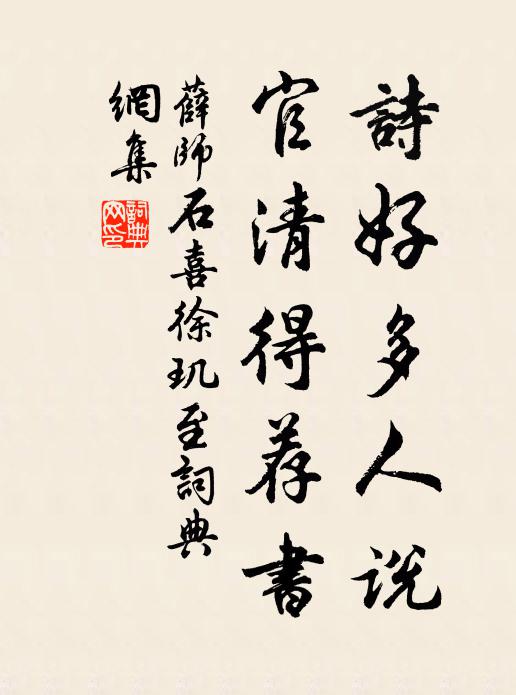 詩好多人説
官清得荐書
薛師石喜徐玑至詞典
網集
詞典
网印